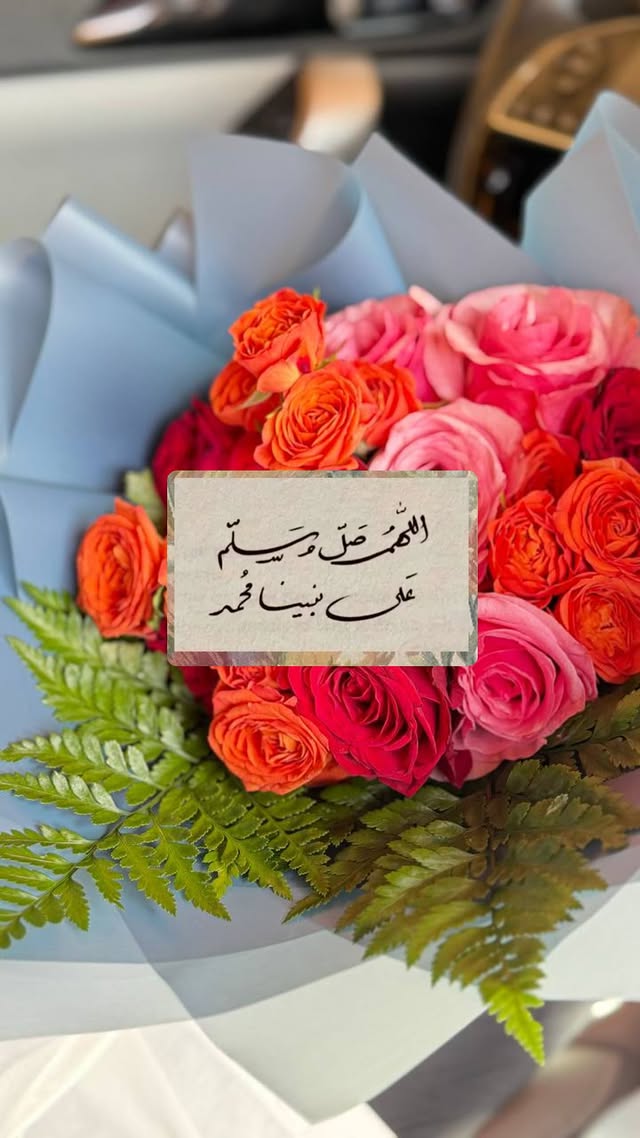 اللَّهُمَّ صَلِّ وَسَلِّم
عَلى نبينا محُمد